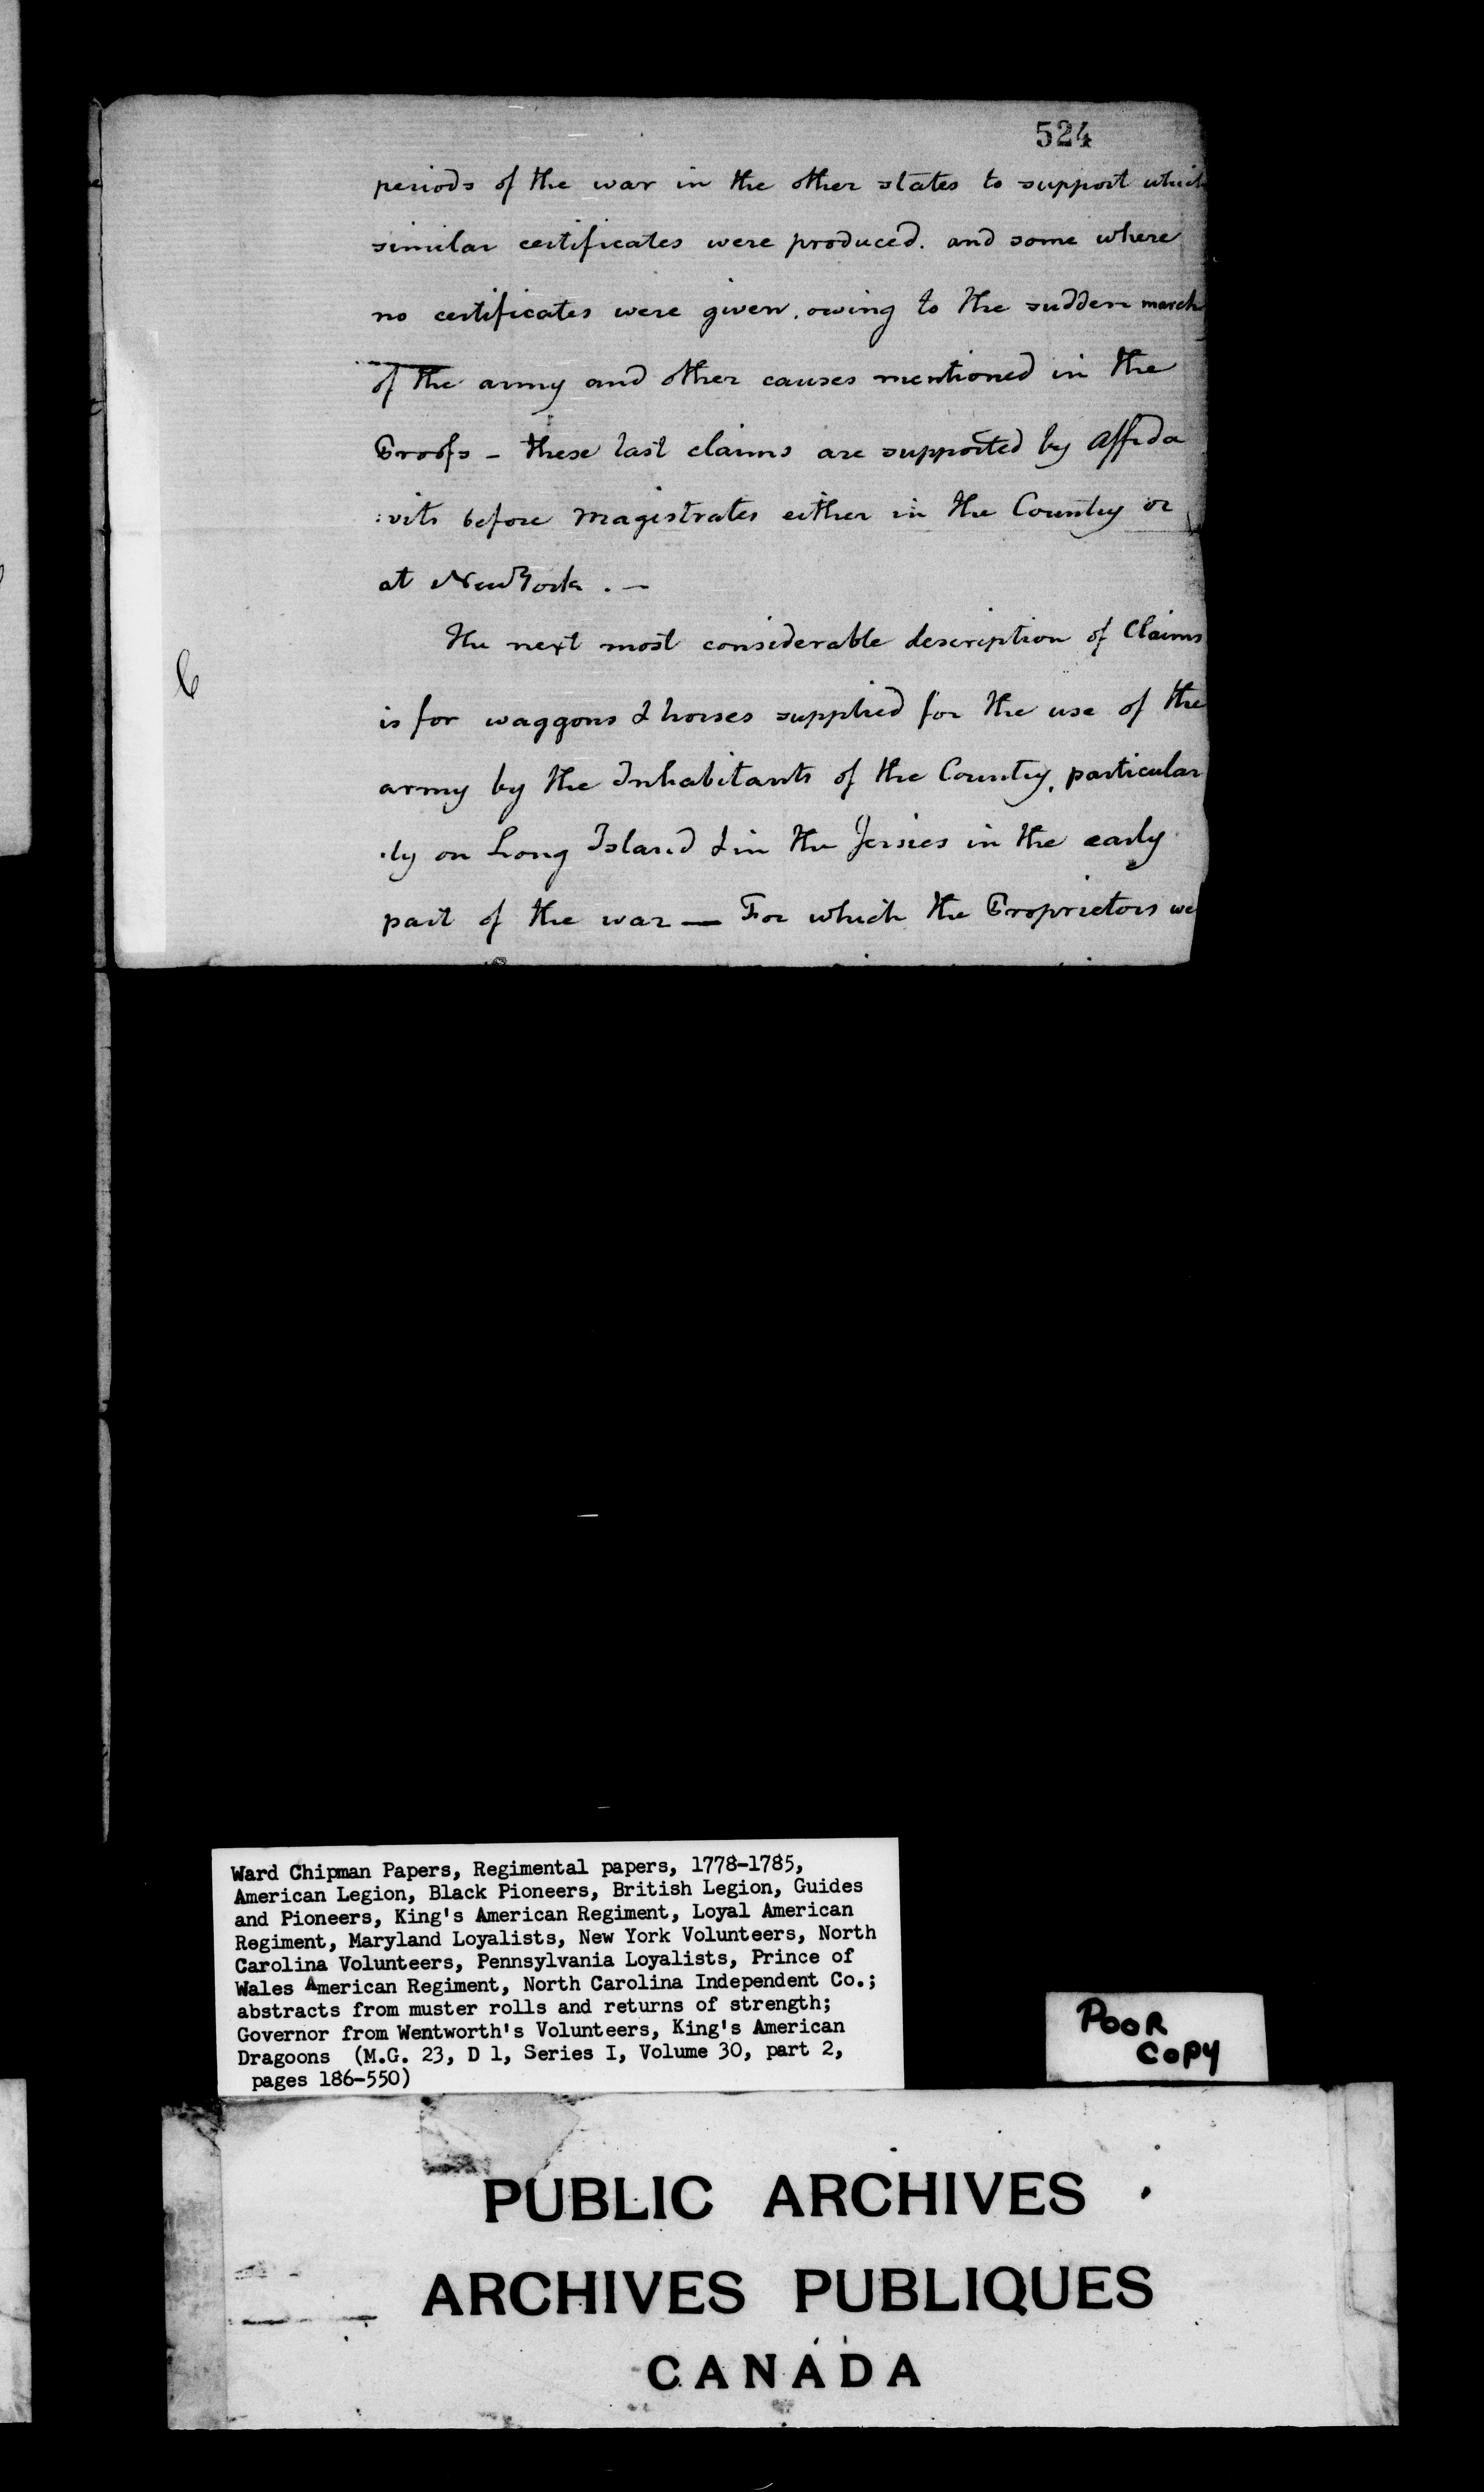 524
periods of the war in the other states to support which
similar certificates were produced. and some where
no certificates were given. owing to the sudden march
of the army and other causes mentioned in the
Proofs - these last claims are supported by Affida
:vits before Magistrates either in the Country or
at New York . —
The next most considerable description of Claims
is for waggons & horses supplied for the use of the
army by the Inhabitants of the Country, particular
.ly on Long Island & in the Jersies in the early
part of the war — For which the Proprietors we
Ward Chipman Papers, Regimental papers, 1778-1785,
American Legion, Black Pioneers, British Legion, Guides
and Pioneers, King's American Regiment, Loyal American
Regiment, Maryland Loyalists, New York Volunteers, North
Carolina Volunteers, Pennsylvania Loyalists, Prince of
Wales American Regiment, North Carolina Independent Co.;
abstracts from muster rolls and returns of strength;
Governor from Wentworth's Volunteers, King's American
Dragoons (M.G. 23, D 1, Series I, Volume 30, part 2,
pages 186-550)
POOR
COPY
PUBLIC ARCHIVES
ARCHIVES PUBLIQUES
CANADA